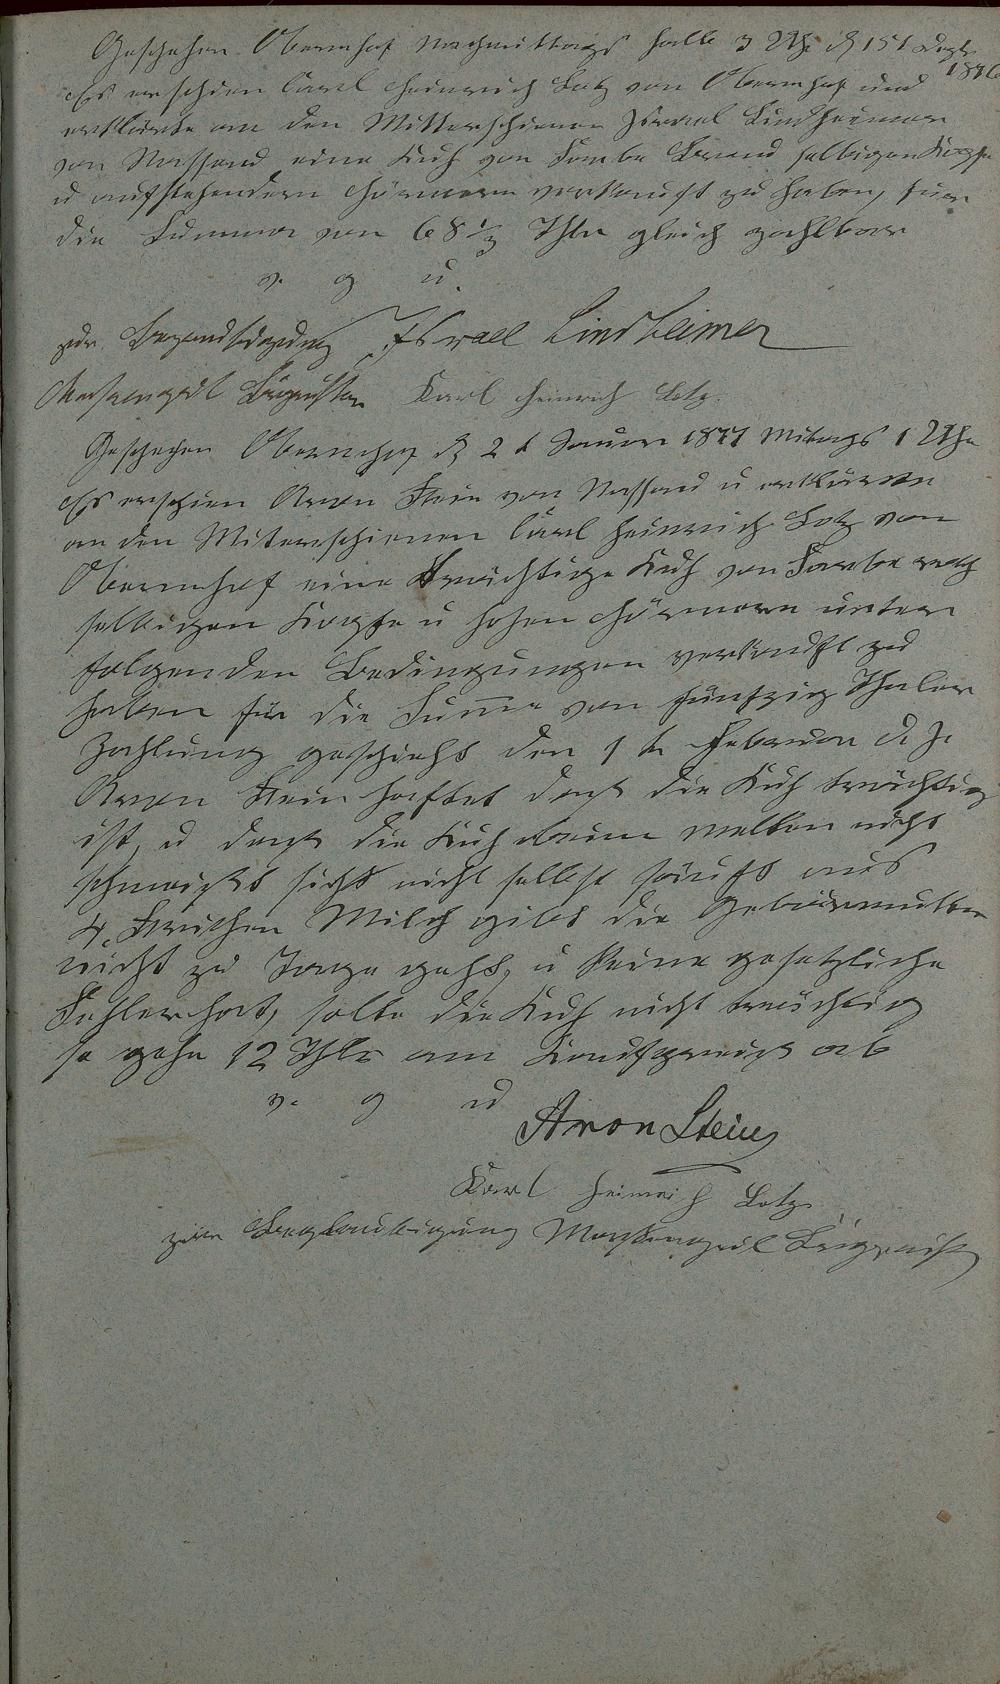 Geschehen Obernhof Nachmittags halb 3 Uhr d 15t Dezbr
1876
Es erschien Carl Heinrich Lotz von Obernhof und
erklärte an den Mitterschienen Israel Lindheimer
von Nassau eine Kuh von Farbe selbigen Kopfe
u aufstehendern Hörnern verkauft zu haben, für
die Summa von 68 1/3 Thlr gleich zahlbar
v. g u.
zur Israel Lindheimer
Karl Heinrich Lotz.
Geschehen Obernhof d 2t Januar 1877 Mitags 1 Uhr
Es erschien Aron Stein von Nassau u erklärte
an den Miterschienen Carl Heinrich Lotz von
Obernhof eine trächtige Kuh von Farbe roth
selbigen Kopfe u hohen Hörnern unter
folgenden Bedingungen verkauft zu
haben für die Summe von fünfzig Thaler
Zahlung geschieht den 1 te Februar d. J.
Aron Stein haftet das die Kuh trächtig
ist, u das die Kuh beim melken nicht
schmeist sichs nicht selbst säuft aus
4 Strichen Milch gibt die Gebärmutter
nicht zu Tage geht, u keine gesetzliche
Fehler hat, solte die Kuh nicht trächtig
so gehn 12 Thlr am Kaufpreis ab
v. g u
Aron Stein
Karl Heinrich Lotz
zur Beglaubigung